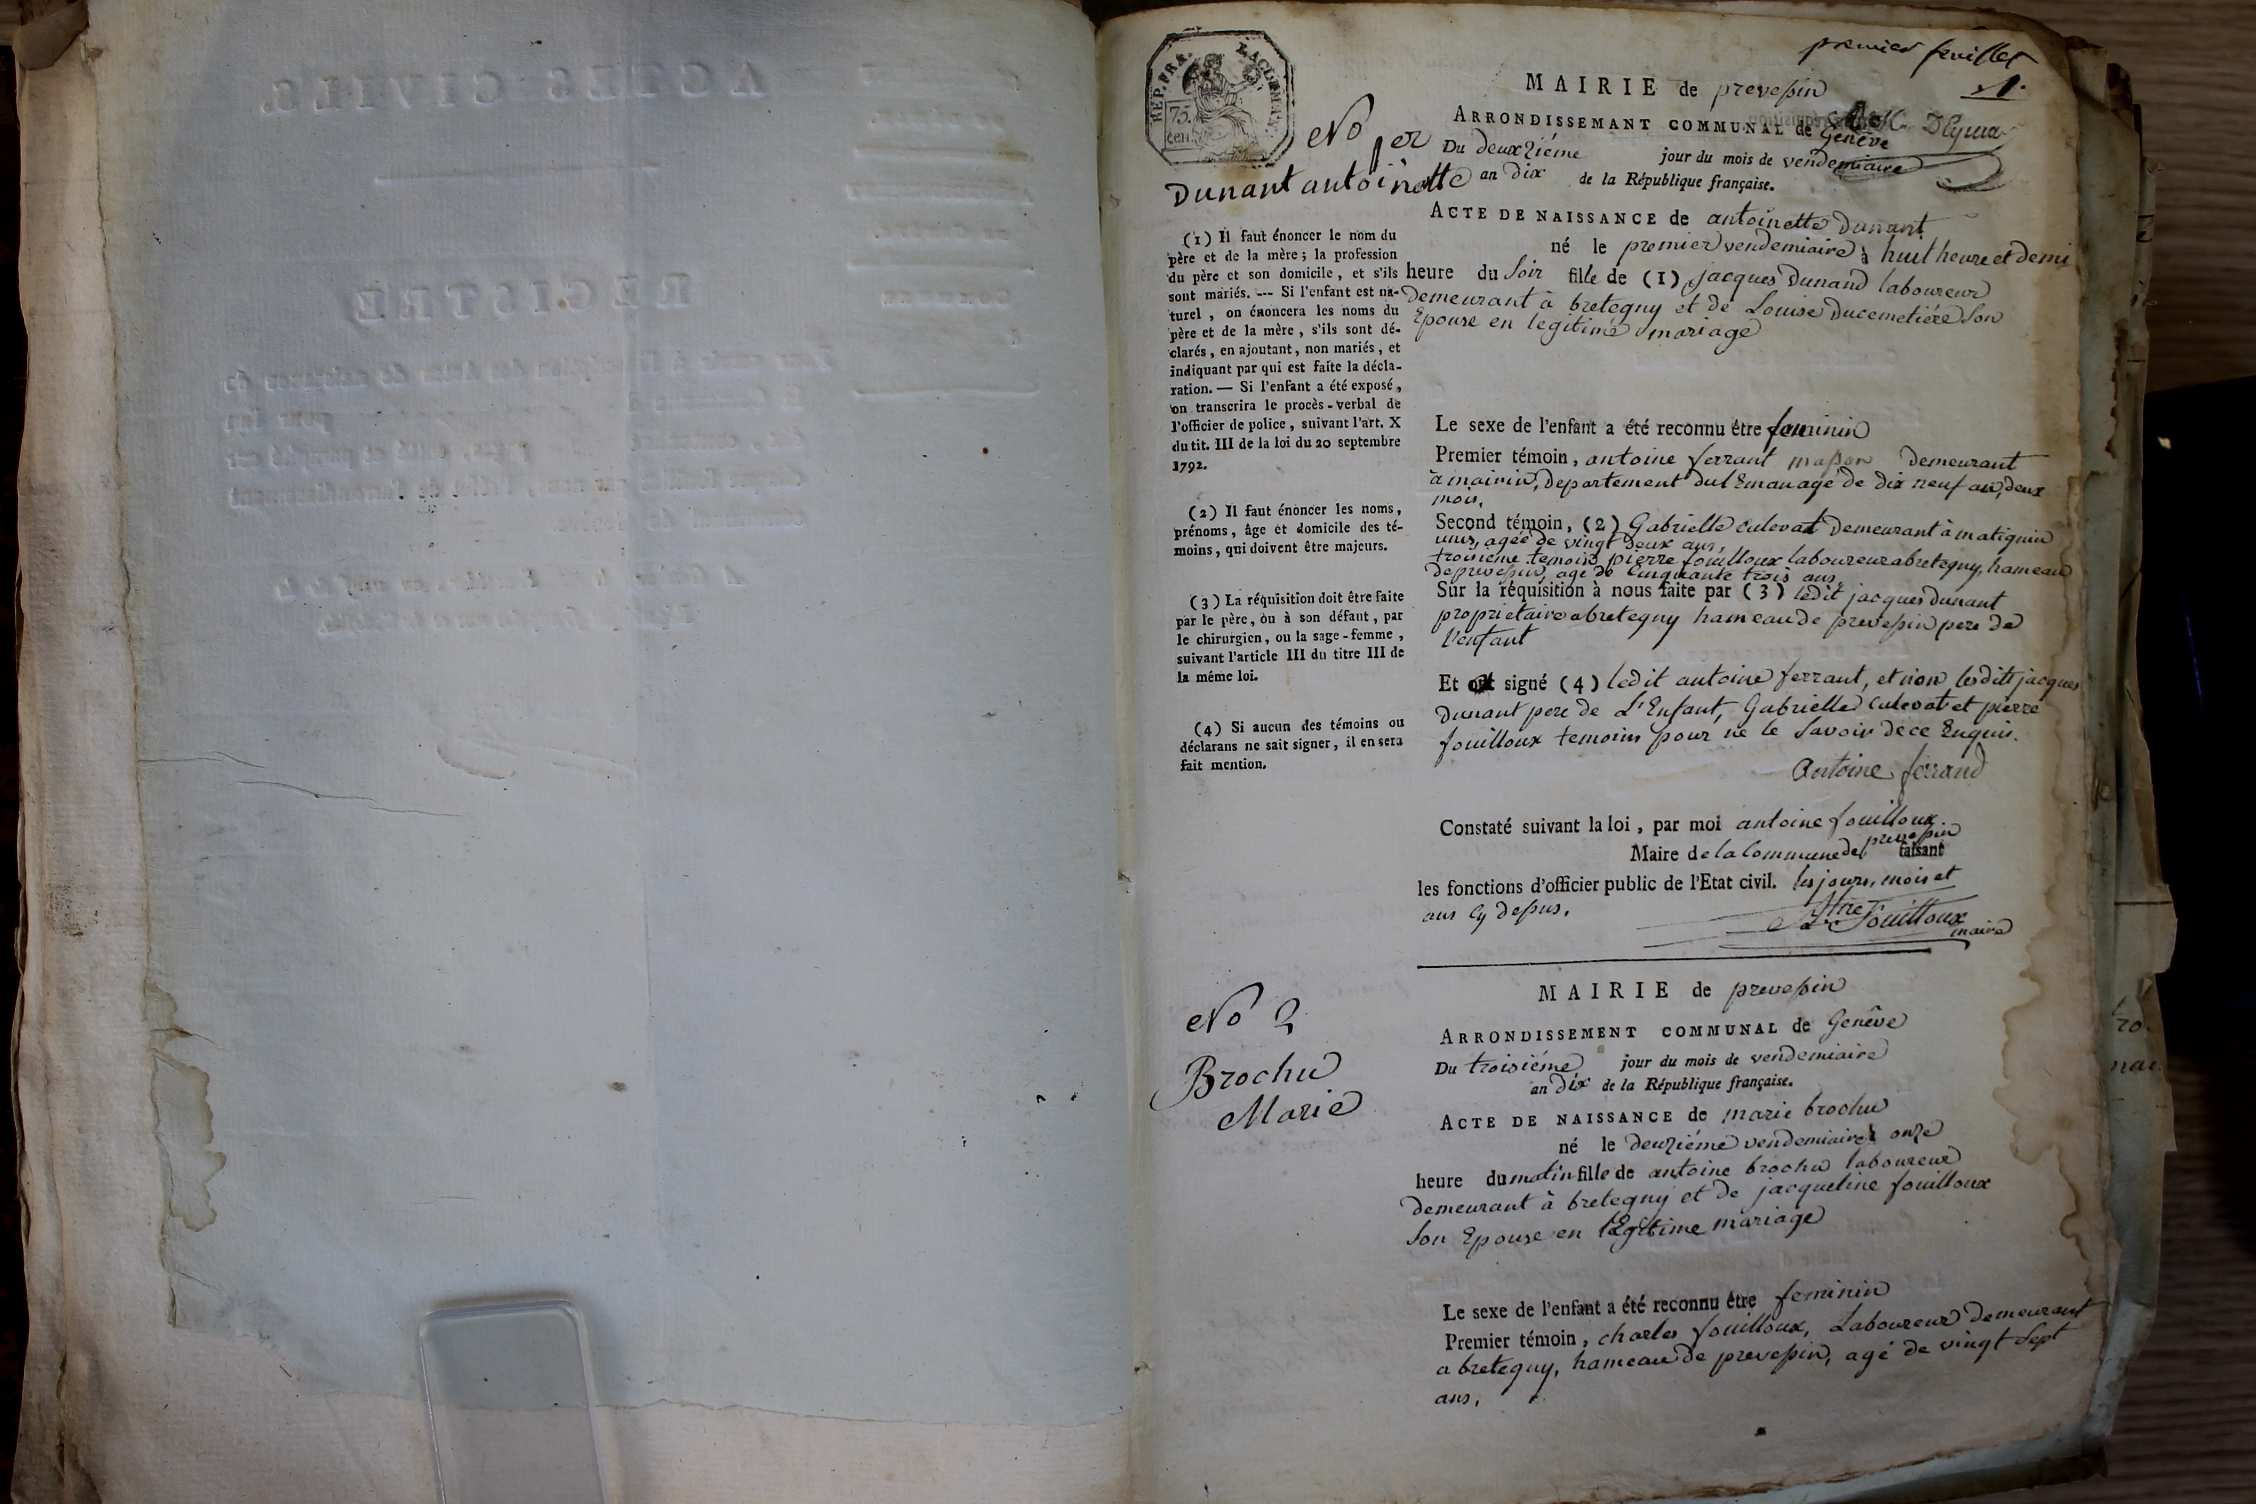 premier feuillet
1.
REP. FRA.
75.
cen.
No 1er
Dunant antoinette
MAIRIE de prevessin
ARRONDISSEMANT COMMUNAL de Genève
Du deuxziéme jour du mois de vendemiaire
an dix de la République française.
ACTE DE NAISSANCE de antoinette Dunant
né le premier vendemiaire à huit heure et demi
heure du Soir fille de (1) jacques Dunand laboureur
demeurant à bretegny et de Louise Ducemetiére Son
Epouse en legitime mariage
(1) Il faut énoncer le nom du
père et de la mère; la profession
du père et son domicile, et s'ils
sont mariés. --- Si l'enfant est na-
turel, on énoncera les noms du
père et de la mère, s'ils sont dé-
clarés, en ajoutant, non mariés, et
indiquant par qui est faite la décla-
ration. — Si l'enfant a été exposé,
on transcrira le procès-verbal de
l'officier de police, suivant l'art. X
du tit. III de la loi du 20 septembre
1792.
(2) Il faut énoncer les noms,
prénoms, âge et domicile des té-
moins, qui doivent être majeurs.
(3) La réquisition doit être faite
par le père, ou à son défaut, par
le chirurgien, ou la sage-femme,
suivant l'article III du titre III de
la même loi.
(4) Si aucun des témoins ou
déclarans ne sait signer, il en sera
fait mention.
Le sexe de l'enfant a été reconnu être feminin
Premier témoin, antoine ferrant masson demeurant
à mairin, departement du Leman agé de dix neuf an, deux
mois,
Second témoin, (2) Gabrielle culevat Demeurant à matignin
agée de vingt deux ans,
troisième temoin pierre fouilloux laboureur a bretegny, hameau
de prevessin, agé de Cinquante trois ans,
Sur la réquisition à nous faite par (3) ledit jacques dunant
proprietaire a bretegny hameau de prevessin pere de
l'enfant
Et ont signé (4) ledit antoine ferrant, et non lesdits jacques
Dunant pere de L'Enfant, Gabrielle culevat et pierre
fouilloux temoins pour ne le Savoir de ce Enquis.
Antoine ferrand
Constaté suivant la loi, par moi antoine fouilloux
Maire de la Commune de prevessin faisant
les fonctions d'officier public de l'Etat civil. les jours, mois et
ans Cy dessus.
Fouilloux
maire
No 2
Brochu
Marie
MAIRIE de prevessin
ARRONDISSEMENT COMMUNAL de Genêve
Du troisiéme jour du mois de vendemiaire
an dix de la République française.
ACTE DE NAISSANCE de marie brochu
né le deuziéme vendemiaire à onze
heure du matin fille de antoine brochu laboureur
demeurant à bretegny et de jacqueline fouilloux
Son Epouse en légitime mariage
Le sexe de l'enfant a été reconnu être feminin
Premier témoin, charles fouilloux, Laboureur demeurant
a bretegny, hameau de prevessin, agé de vingt Sept
ans,